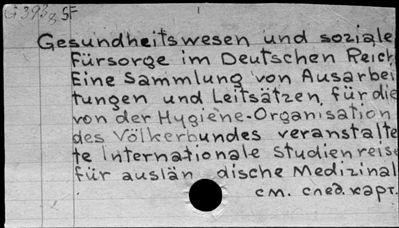 G 393 SF
Gesundheitswesen und soziale
Fürsorge im Deutschen Reich
Eine Sammlung von Ausarbei
tungen und Leitsätzen, für die
von der Hygiène-Organisation
des Völkerbundes veranstalte
te Internationale Studienreise
für auslän dische Medizinal
см. след. карт.